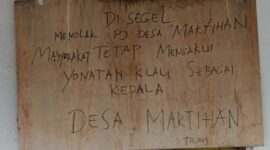 DI SEGEL
MENOLAK PJ DESA MAKTIHAN
MASYARAKAT TETAP MENGAKUI
YONATAN KLAU SEBAGAI
KEPALA
DESA. MAKTIHAN
TRIMS